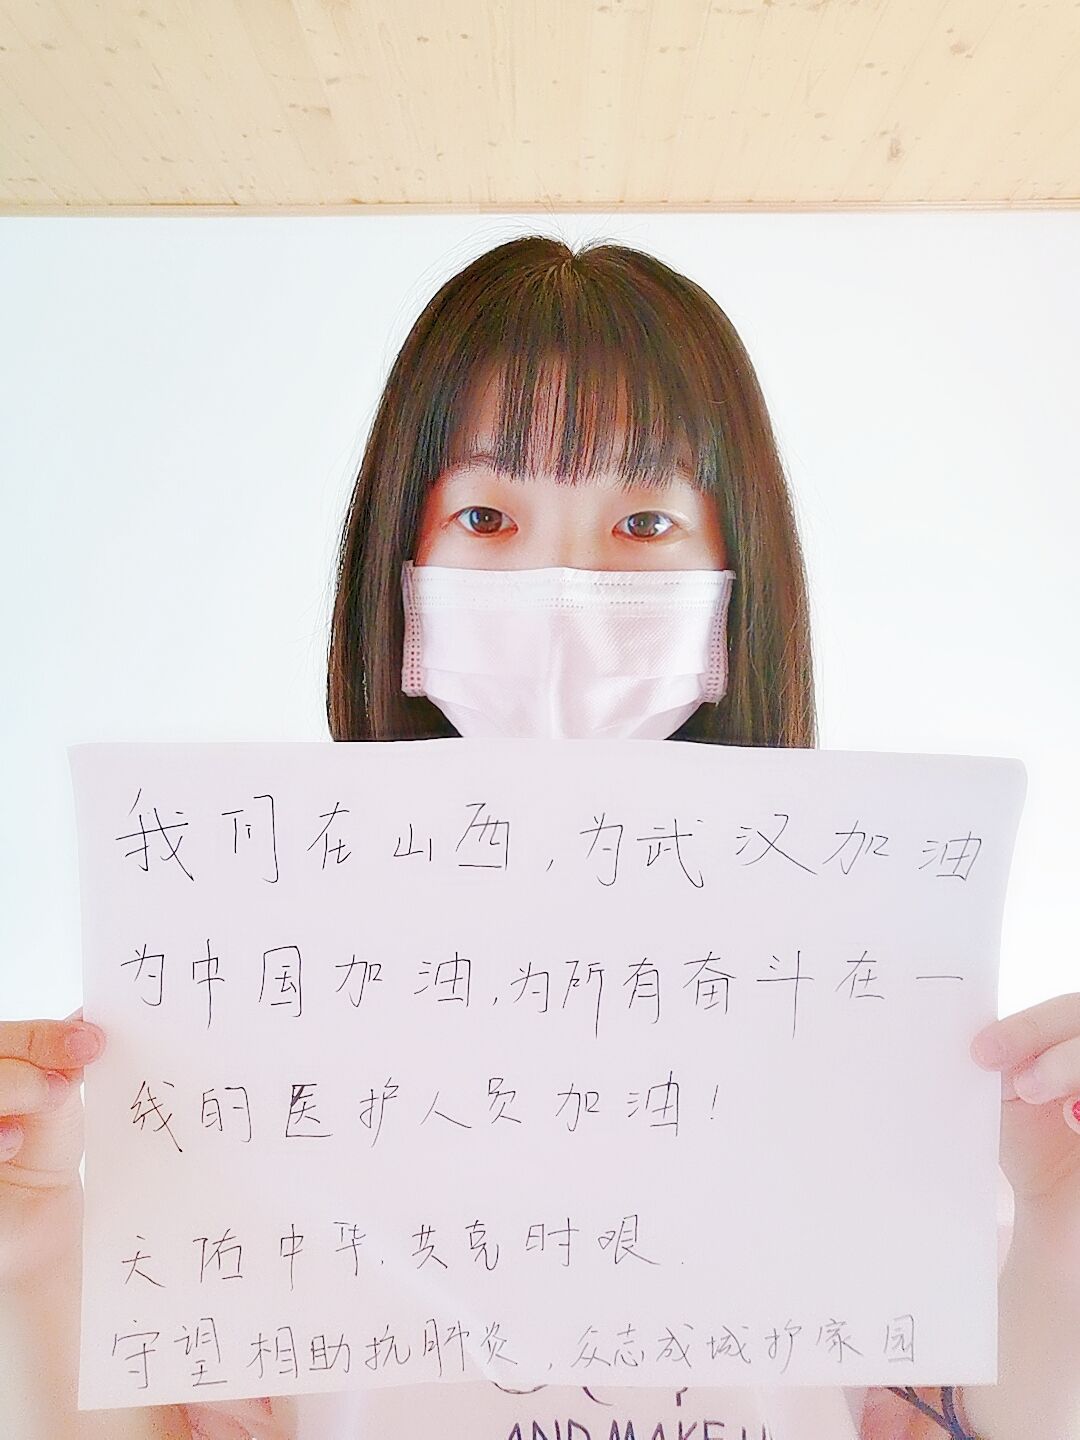 我们在山西，为武汉加油
为中国加油，为所有奋斗在一
线的医护人员加油！
天佑中华，共克时艰．
守望相助抗肺炎，众志成城护家园
AND MAKE U